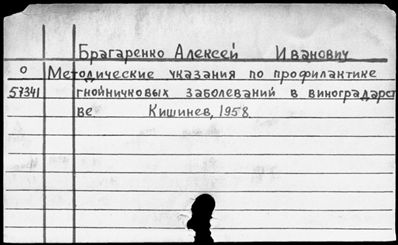 Брагаренко Алексей Иванович
О Методические указания по профилактике
57341 гнойничковых заболеваний в виноградарст
ве. Кишинев, 1958